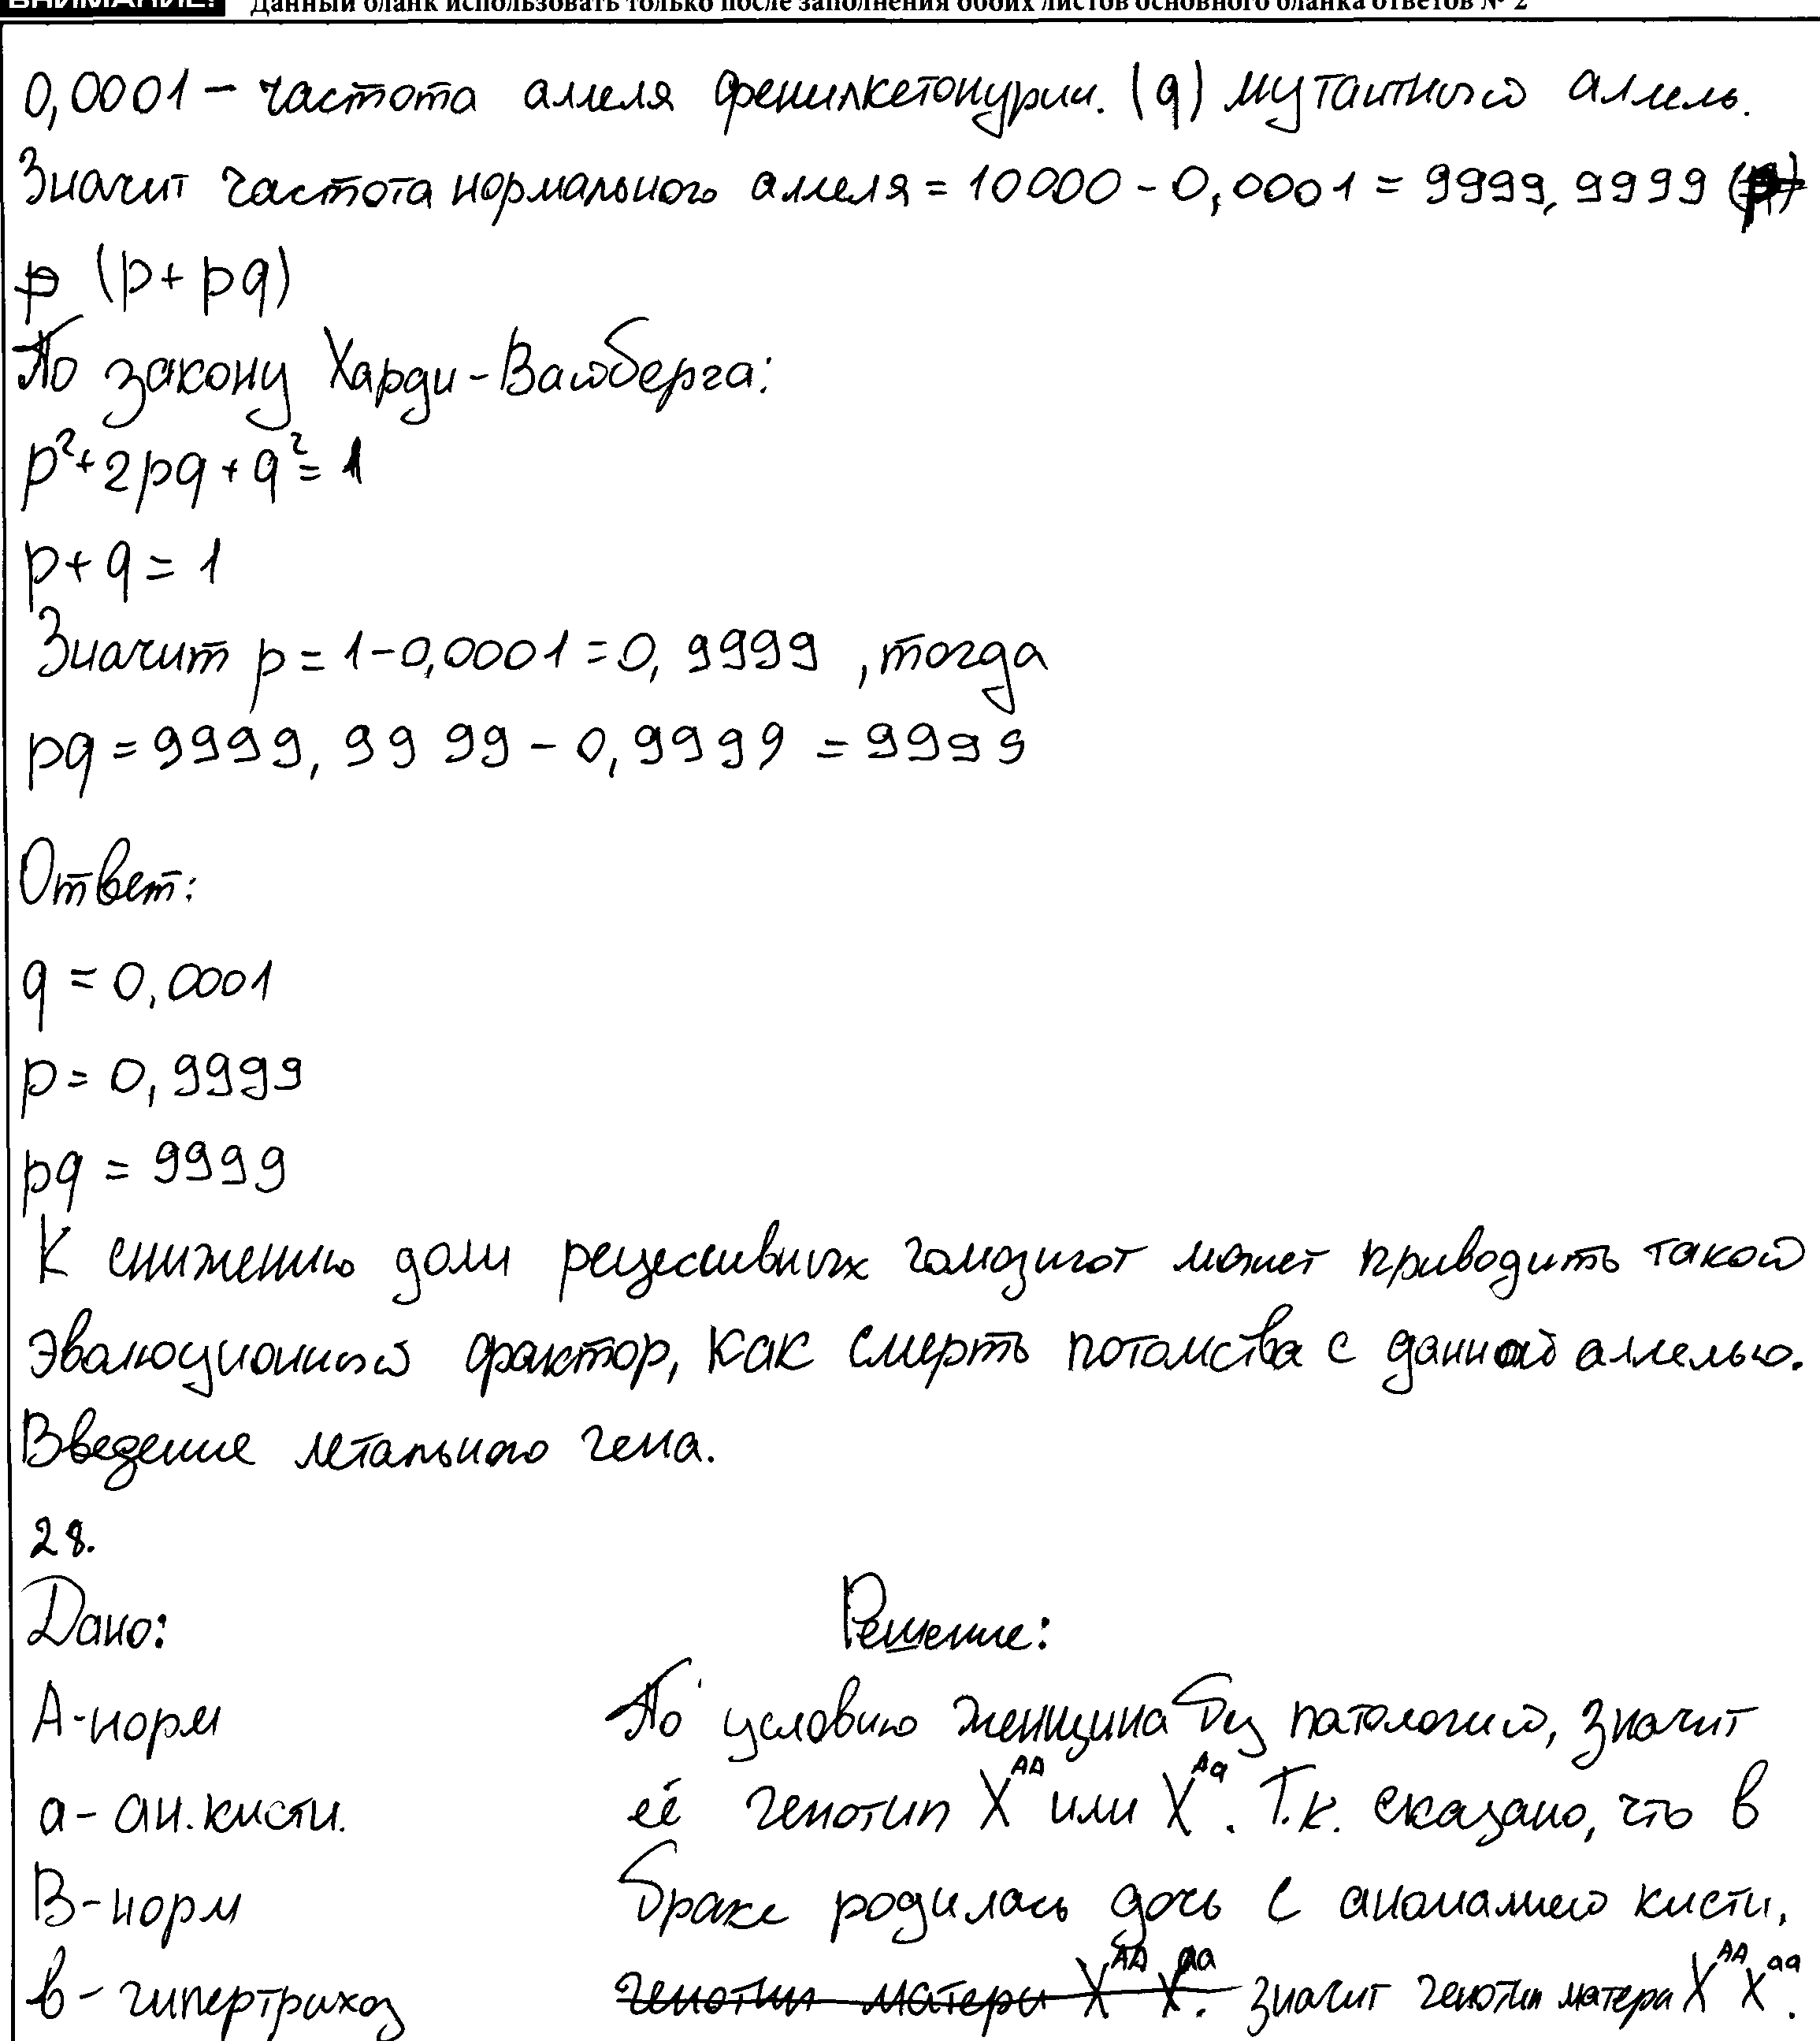 ВНИМАНИЕ! Данный бланк использовать только после заполнения обоих листов основного бланка ответов № 2
0,0001 – частота аллеля фенилкетонурии. (q) мутантного аллель.
Значит частота нормального аллеля = 10000 - 0,0001 = 9999,9999
p (p + pq)
По закону Харди-Вайберга:
p²+2pq+q²=1
p+q=1
Значит p=1-0,0001=0,9999, тогда
pq=9999,9999-0,9999=9999
Ответ:
q=0,0001
p=0,9999
pq=9999
К снижению доли рецессивных гомозигот может приводить такой
эволюционный фактор, как смерть потомства с данной аллелью.
Введение летального гена.
28.
Дано: Решение:
А-норм По условию женщина без патологий, значит
а-ан.кисти. её генотип X^AA или X^Aa. Т.к. сказано, что в
В-норм браке родилась дочь с аномалией кисти,
в-гипертрихоз генотип матери X^AA X^aa. значит генотип матера X^AA X^aa.